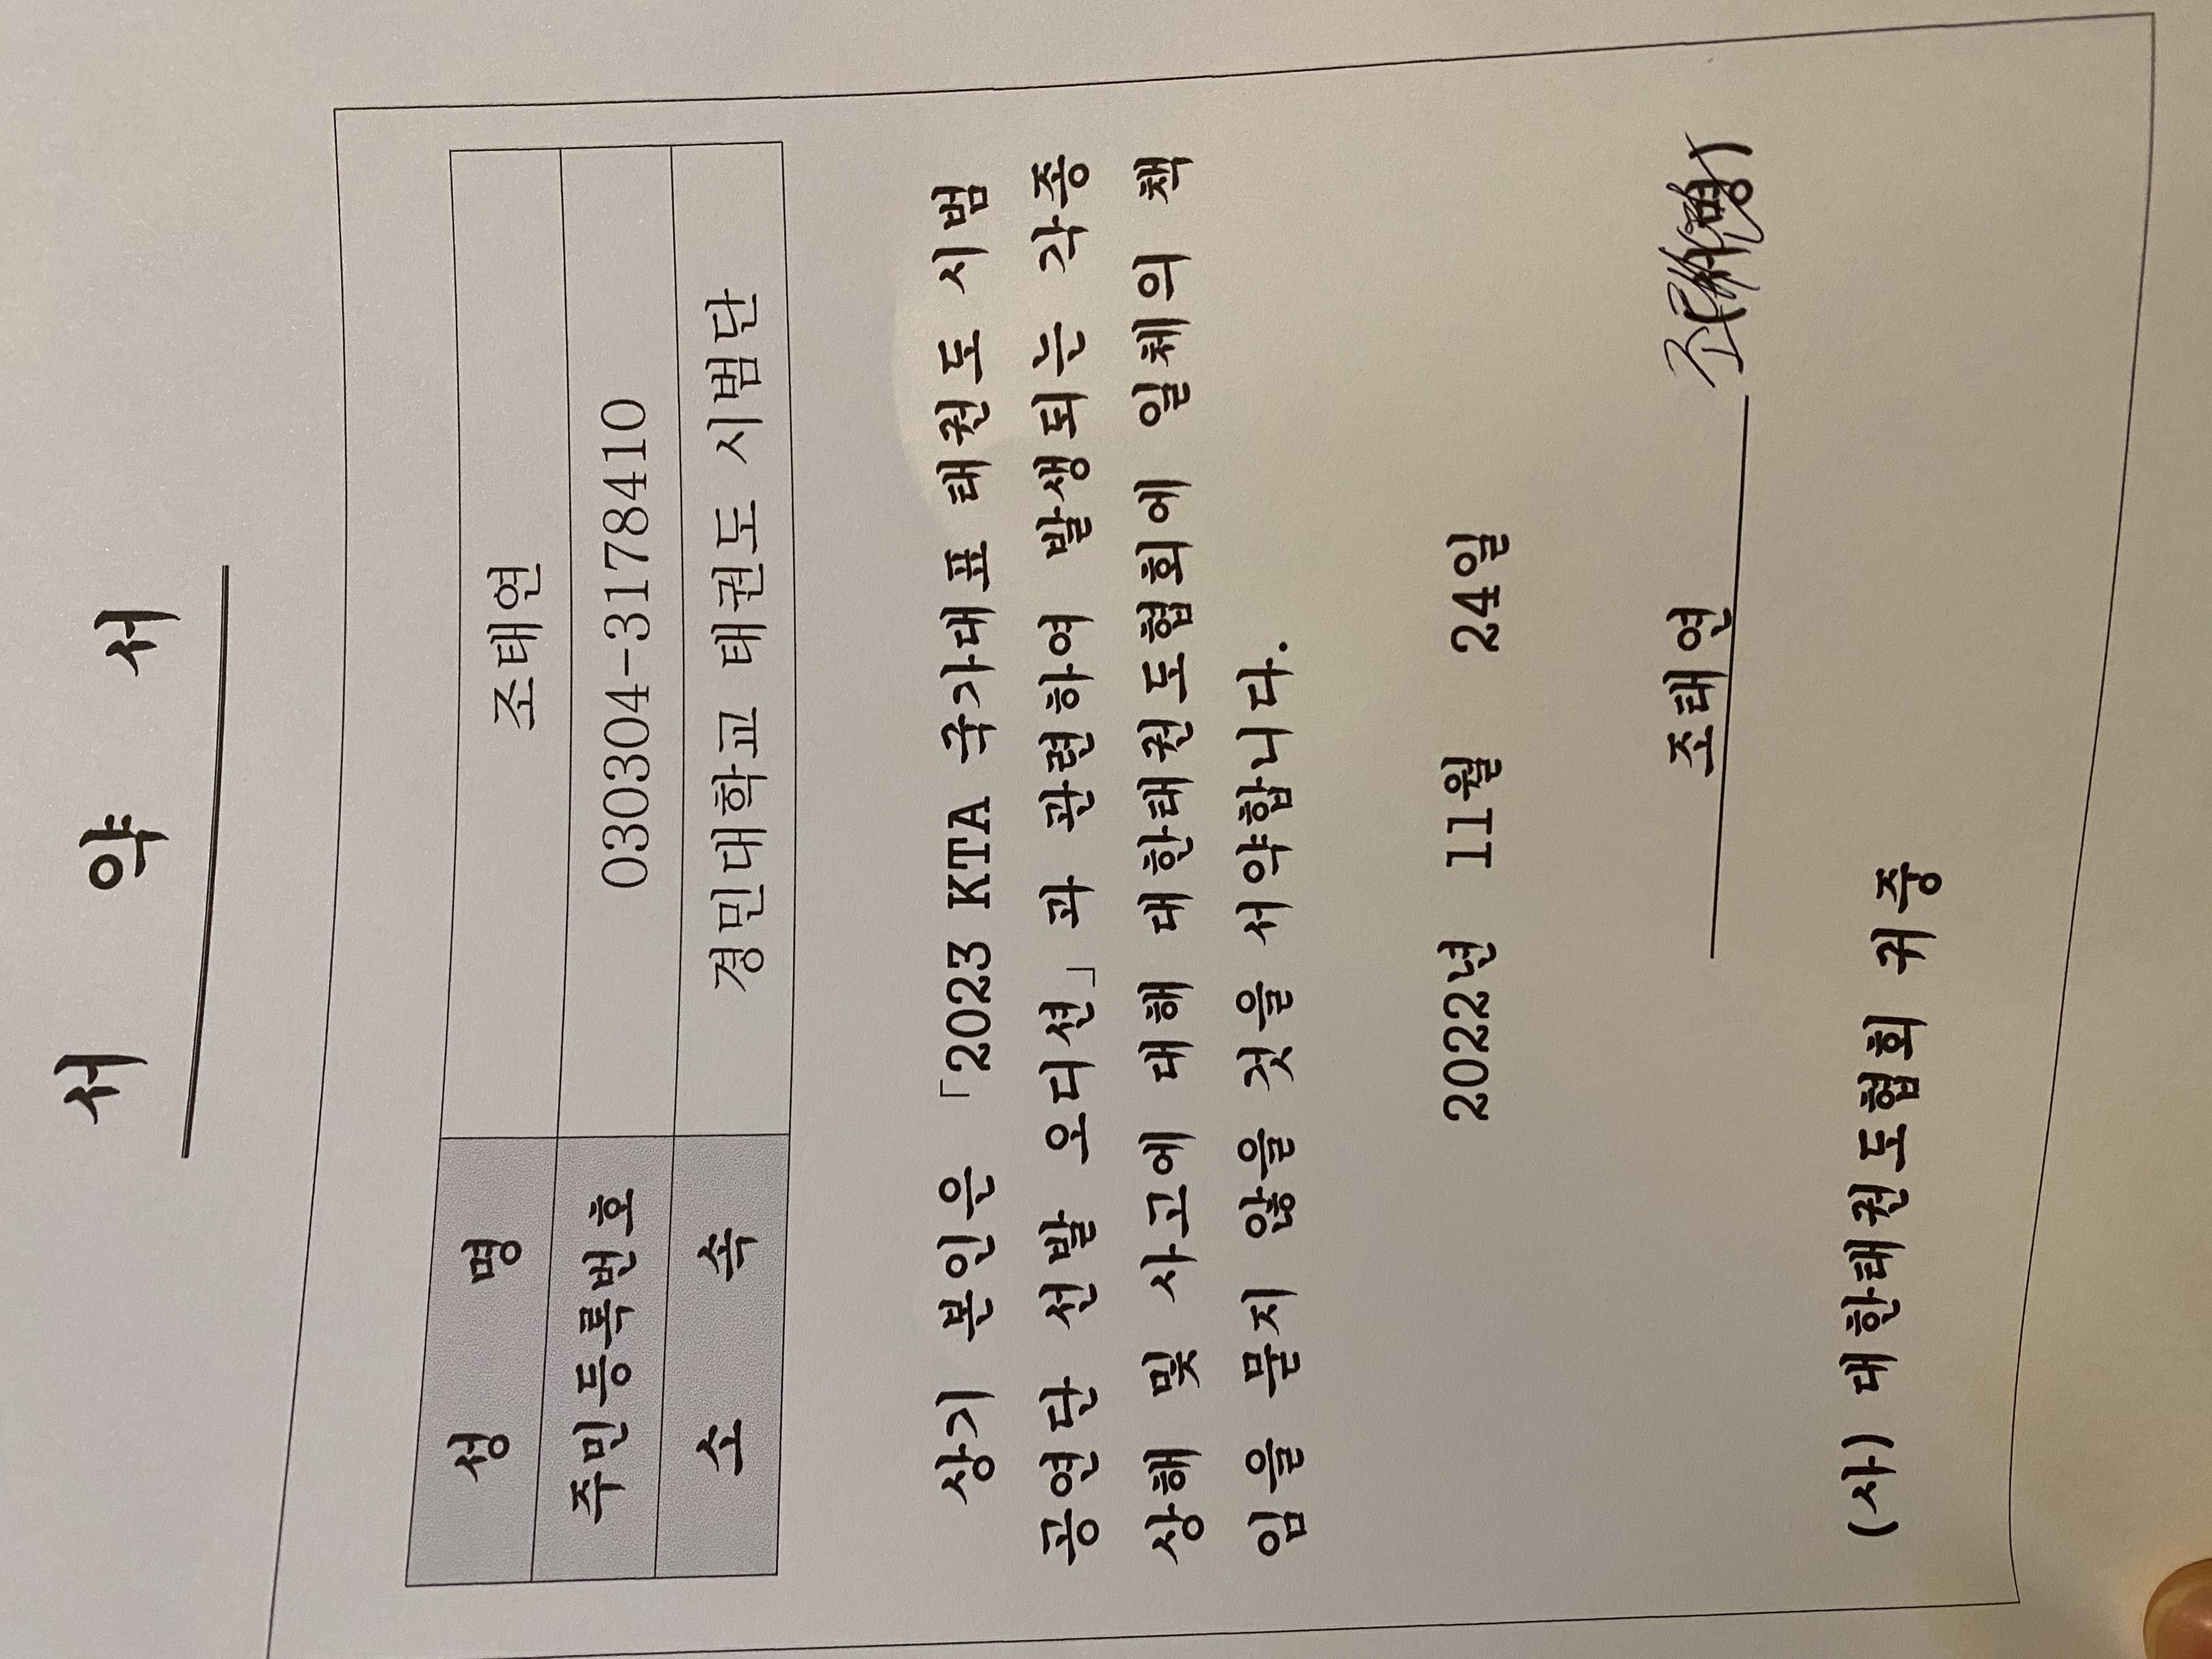 서 약 서
성 명 조태연
주민등록번호 030304-3178410
소 속 경민대학교 태권도 시범단
상기 본인은 「2023 KTA 국가대표 태권도 시범
공연단 선발 오디션」과 관련하여 발생되는 각종
상해 및 사고에 대해 대한태권도협회에 일체의 책
임을 묻지 않을 것을 서약합니다.
2022년 11월 24일
조태연 (서명)
(사) 대한태권도협회 귀중